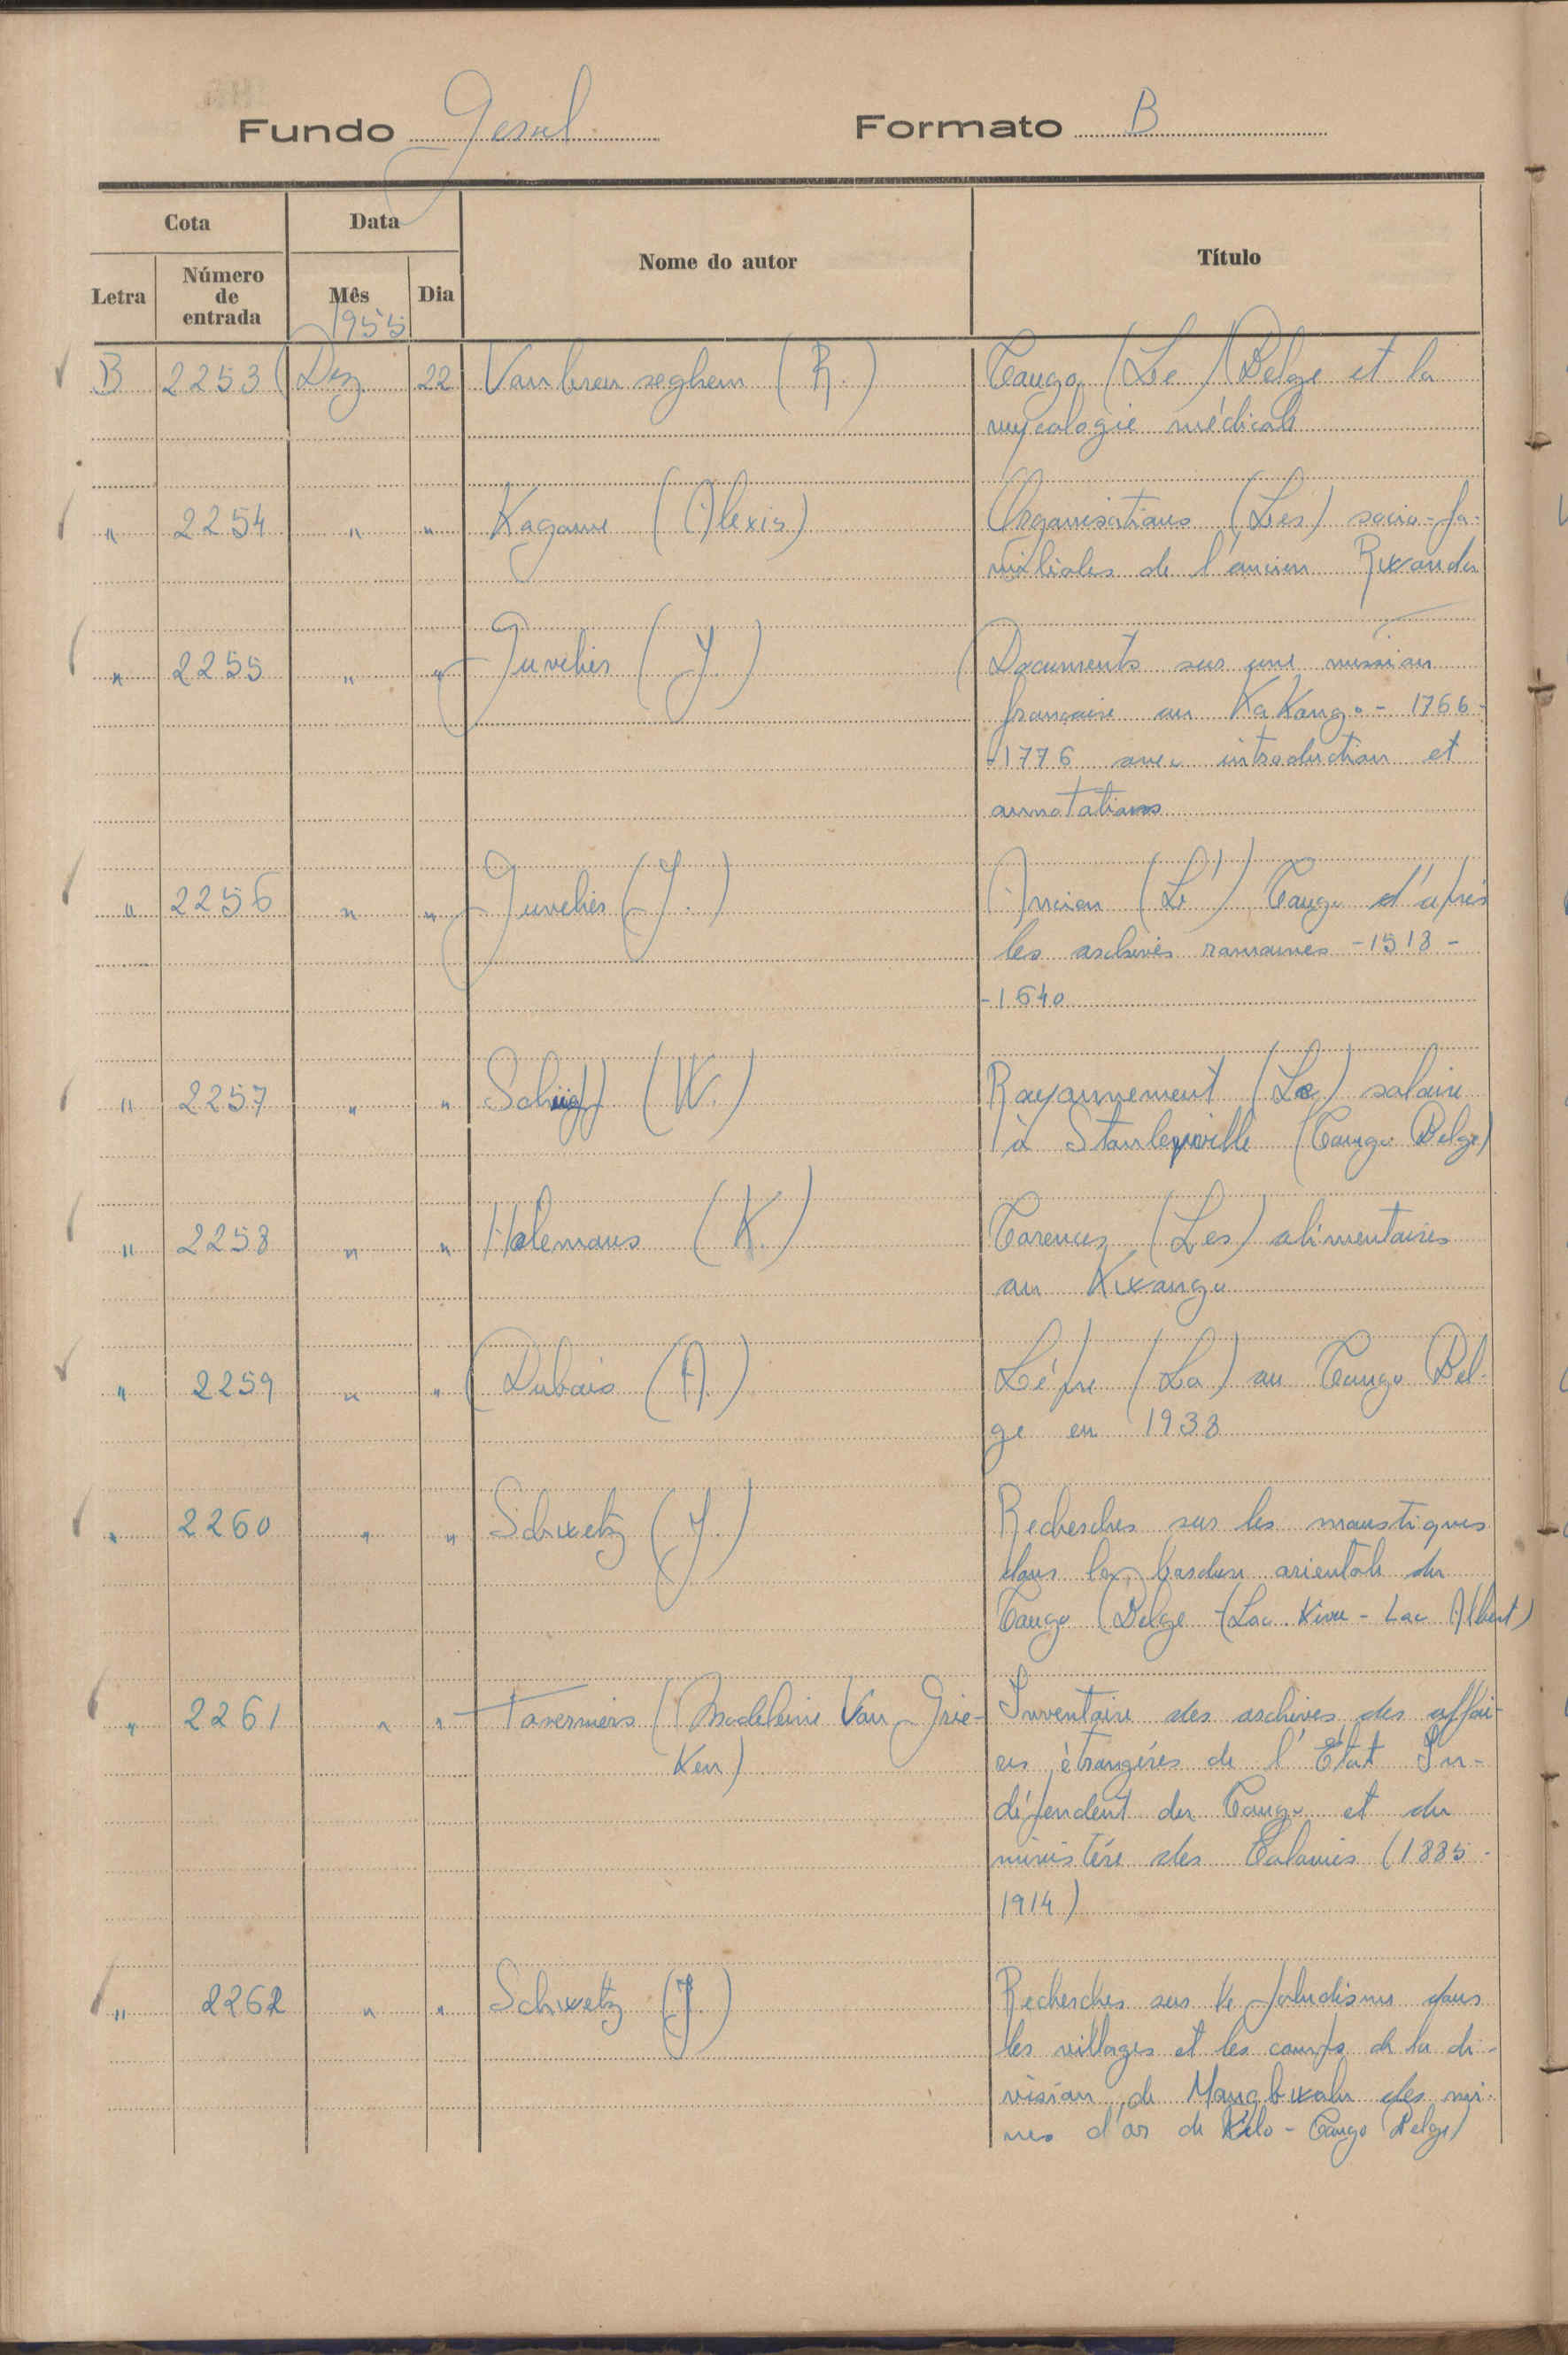 Fundo Geral Formato B
Cota Data Nome do autor Título
Letra Número de entrada Mês Dia
1955
B 2253 Dez 22 Vanbreuseghem (R.) Congo (Le) Belge et la
mycologie médicale
" 2254 " " Kagame (Alexis) Organisations (Les) socio-fa-
miliales de l'ancien Rwanda
" 2255 " " Cuvelier (J.) Documents sur une mission
française au KaKongo - 1766 -
- 1776 avec introduction et
annotations
" 2256 " " Cuvelier (J.) Ancien (L') Congo d'après
les archives romaines - 1518 -
- 1640
" 2257 " " (W.) Rayonnement (Le) solaire
à Stanleyville (Congo Belge)
" 2258 " " Holemans (K.) Carences (Les) alimentaires
au Kwango
" 2259 " " Dubois (A.) Lépre (La) au Congo Bel-
ge en 1938
" 2260 " " Schwetz (J.) Recherches sur les moustiques
dans la bordure orientale du
Congo Belge (Lac Kivu - Lac Albert)
" 2261 " " Taverniers (Madeleine Van Grie- Inventaire des archives des affai-
Ken) res étrangéres de l'État In-
dépendent du Congo et du
ministére des Colonies (1885 -
1914)
" 2262 " " Schwetz (J.) Recherches sur le paludisme dans
les villages et les camps de la di-
vision de Mongbwalu des mi-
nes d'or de Kilo - Congo Belge)